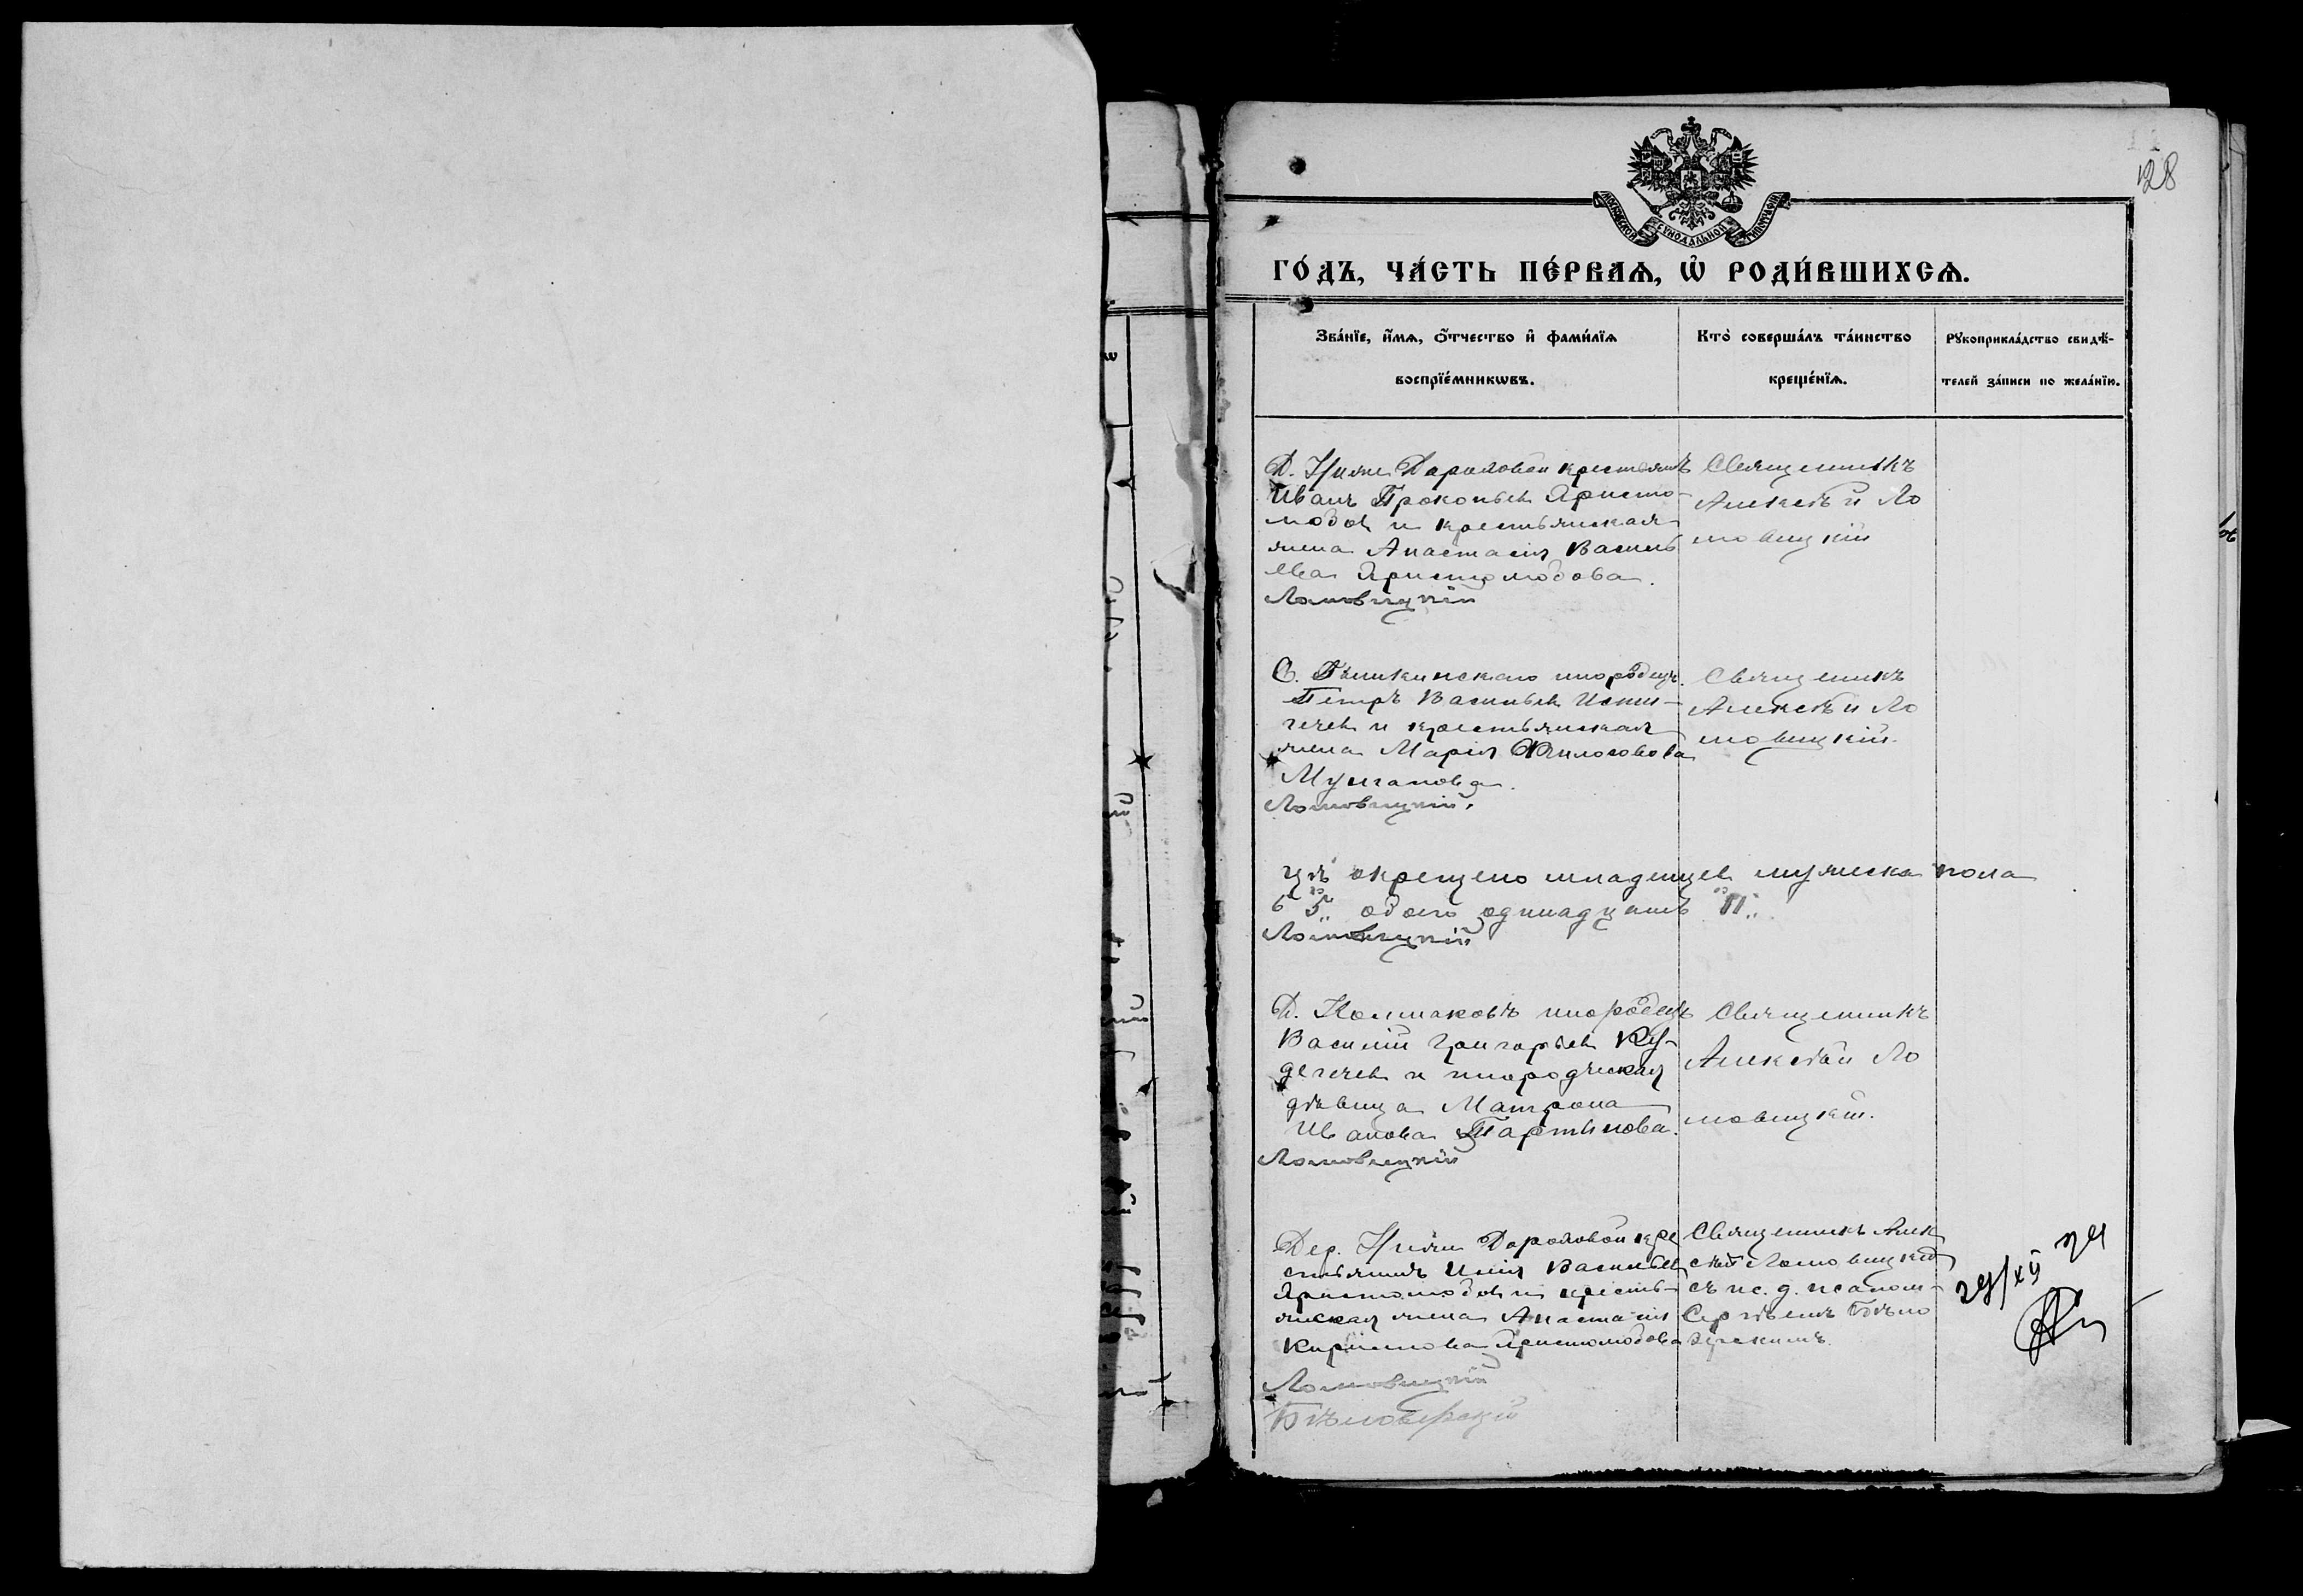 128
МОСКОВСКОЙ СѴНОДАЛЬНОЙ ТИПОГРАФІИ
ГО́ДЪ, ЧА́СТЬ ПЕ́РВАѦ, Ѽ РОДИ́ВШИХСѦ.
Зва́нїе, и҆́мѧ, ѻ҆́тчество и҆ фами́лїѧ
воспрїе́мникѡвъ.
Кто̀ соверша́лъ та́инство
креще́нїѧ.
Рꙋкоприкла́дство свидѣ́-
телей за́писи по жела́нїю.
Д. Дороловой крестьянинъ
Иванъ Прокопьевъ Аристо-
модовъ и крестьянская
жена Анастасія Василь
ева Аристомодова.
Ломовицкій
Священникъ
Алексѣй Ло
мовицкій
С. инородецъ
Петръ Васильевъ
и крестьянская
жена Марія Филосовова
Мунганова.
Ломовицкій.
Священникъ
Алексѣй Ло
мовицкій.
окрещено младенцевъ мужеска пола
6 5 обоего одинадцать 11
Ломовицкій
Д. Колмаковъ инородецъ
Василій Григорьевъ Ку-
дечевъ и инородческая
дѣвица Матрона
Иванова
Ломовицкій
Священникъ
Алексѣй Ло
мовицкій.
Дер. Дороловой кре
стьянинъ Илія Васильевъ
Аристомодовъ и кресть-
янская жена Анастасія
Кирилова Аристомодова
Ломовицкій
Бѣлозерскій
Священникъ Алек
сѣй Ломовицкій
съ ис. д. псалом-
Сергѣемъ Бѣло
зерскимъ.